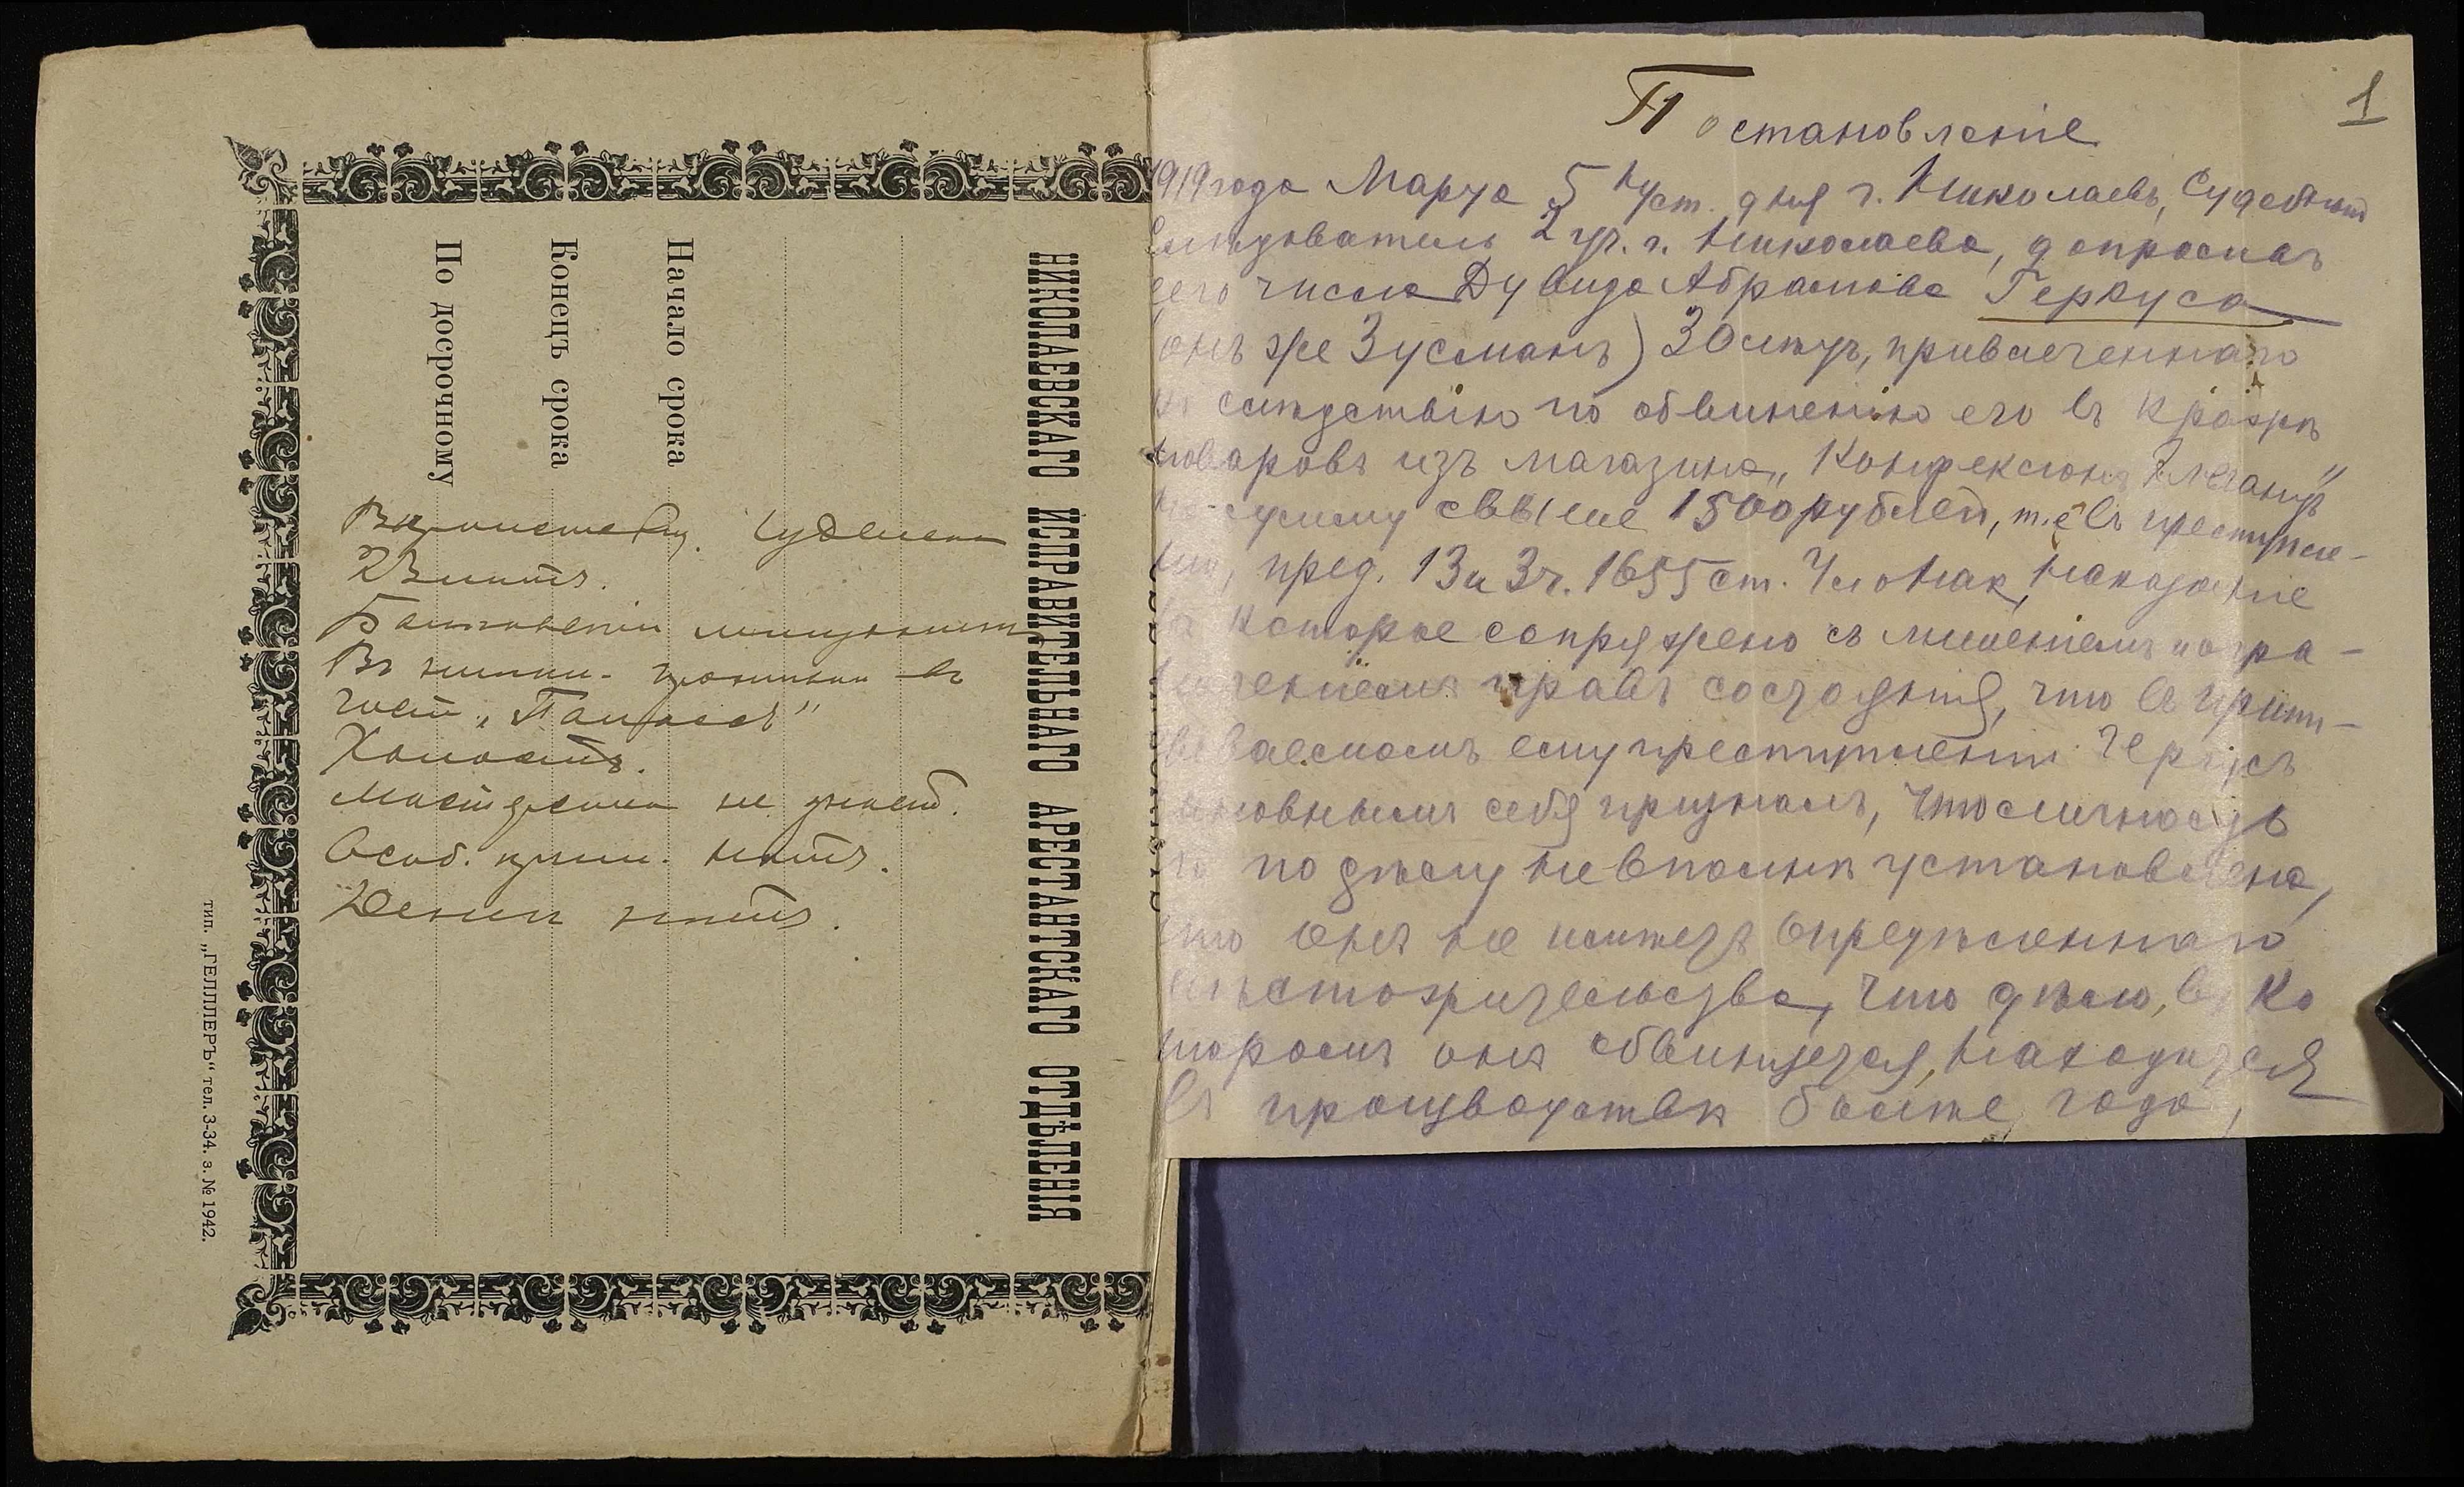 НИКОЛАЕВСКАГО ИСПРАВИТЕЛЬНАГО АРЕСТАНТСКАГО ОТДѢЛЕНІЯ
Начало срока
Конецъ срока
По досрочному
тип. „ГЕЛЛЛЕРЪ“ тел. 3-34. з. № 1942.
2 Винтъ.
Въ
гост „Паласъ"
Холостъ.
не знаетъ.
Особ. прим. нѣтъ.
Денегъ нѣтъ.
1
Постановленіе
1919 года Марта 5 дня г. Николаевъ, Судебный
Слѣдователь 2 уч. г. Николаева, допросивъ
сего числа Дувида Абрамова Геркуса
(онъ же Зусманъ) 30 лѣтъ, привлеченнаго
къ слѣдствію по обвиненію его въ кражѣ
товаровъ изъ магазина „Конфексіонъ Элегантъ"
на сумму свыше 1500 рублей, т.е. въ преступле-
ніи, пред. 13 и 3 ч. 1655 ст. Улож Нак, наказаніе
за которое сопряжено съ лишеніемъ и огра-
ниченіемъ правъ состоянія, что въ припи-
сываемомъ ему преступленіи Геркусъ
виновнымъ себя призналъ, что личность
его по дѣлу не вполнѣ установлена,
что онъ не имѣетъ опредѣленнаго
мѣстожительства, что дѣло, въ ко
торомъ онъ обвиняется, находится
въ производствѣ болѣе года,